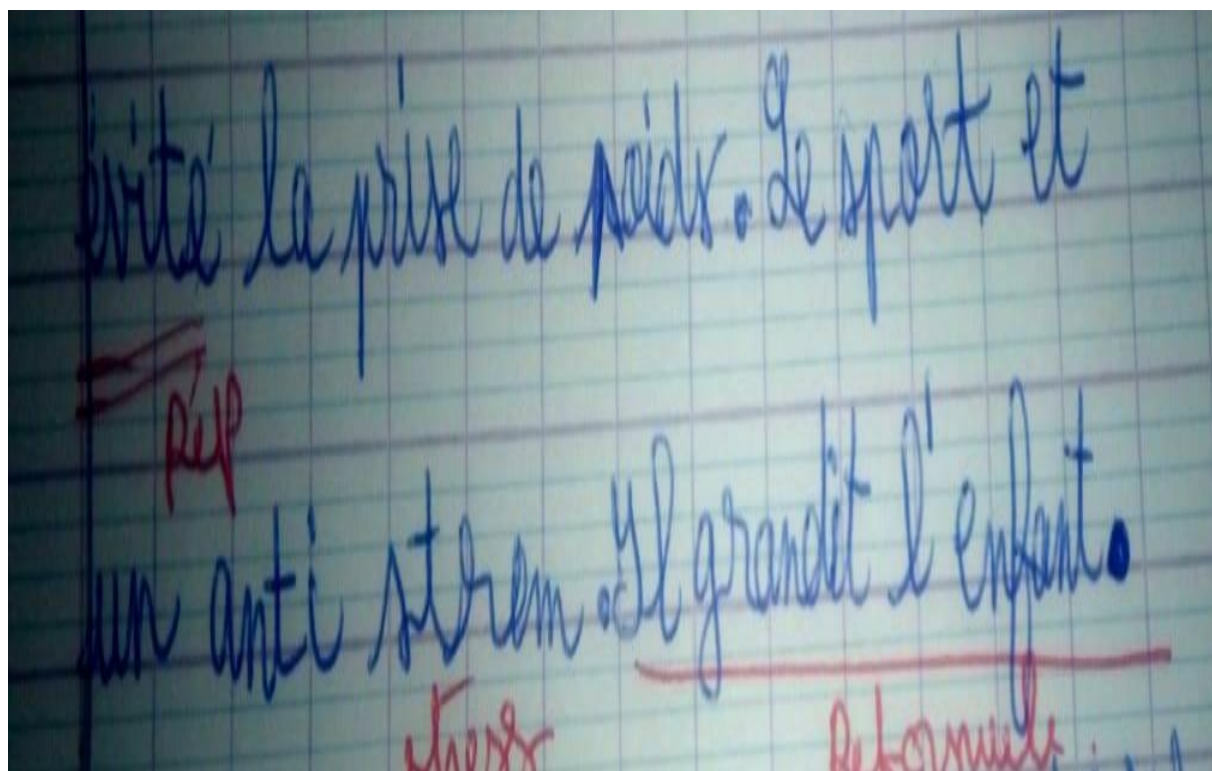 évité la prise de poids. Le sport et
Rép
un anti strem. Il grandit l'enfant.
stress